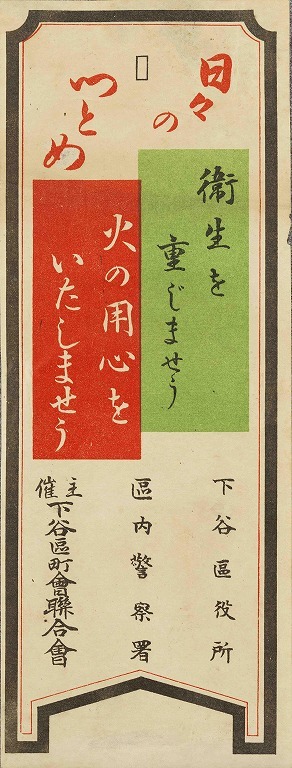 日々
の
つとめ
衛生を
重じませう
火の用心を
いたしませう
下谷區役所
區内警察署
主催
下谷區町會聯合會